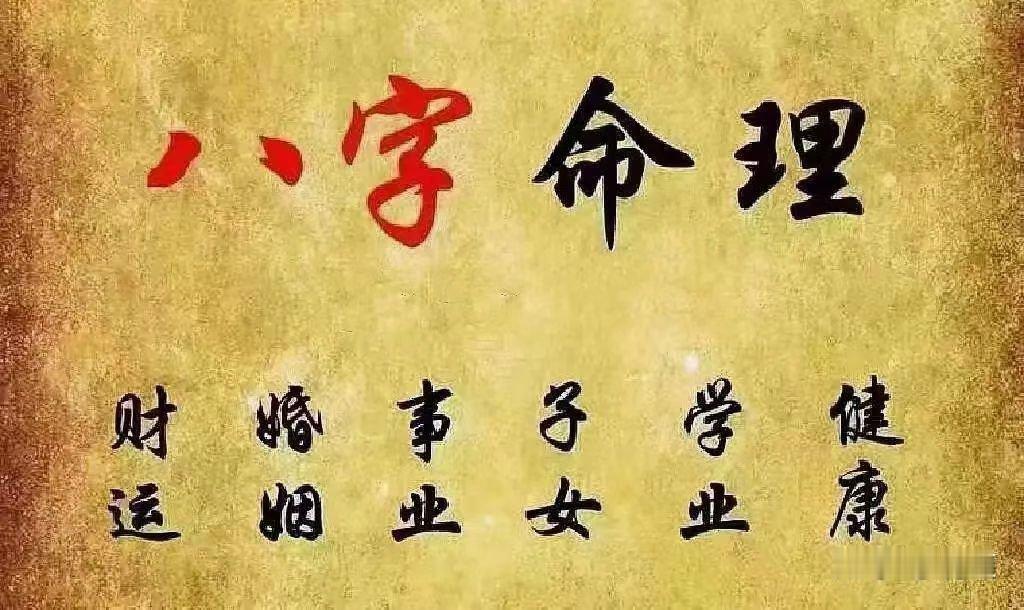 八字 命理
财运 婚姻 事业 子女 学业 健康